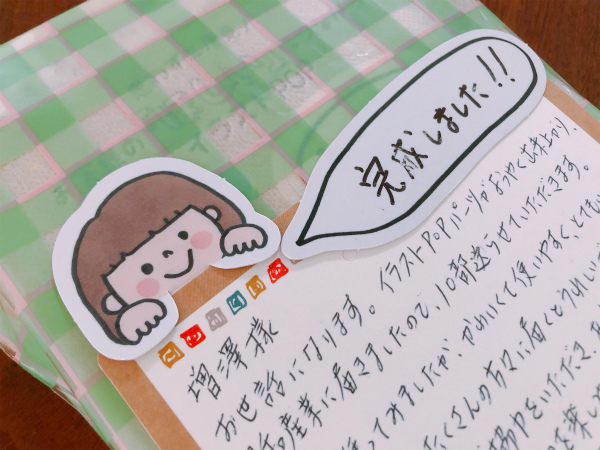 完成しました!!
増澤様
お世話になります。イラストPOPパーツがようやく出来上がり、
産業に届きましたので、10部送らせていただきます。
ってみましたが、かわいくて使いやすく、とても
たくさんの方々に届くとうれしい
協力をいただき、
を楽し